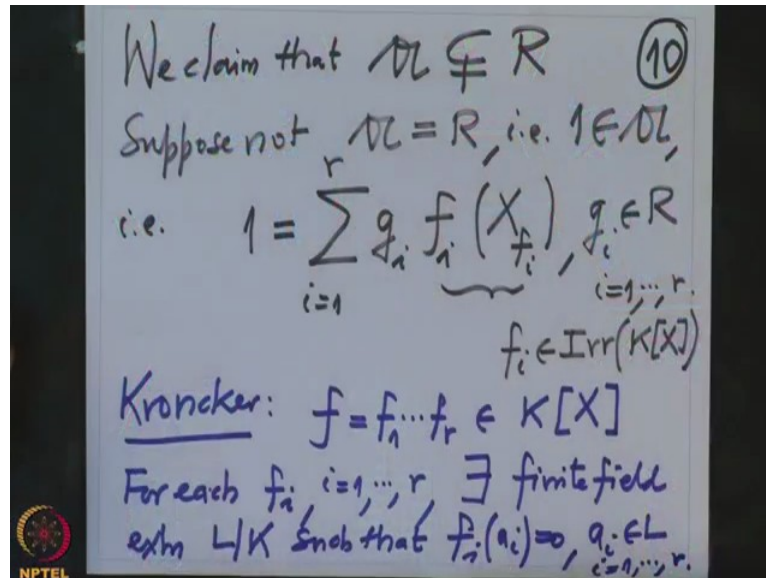 We claim that 𝔄 ⊊ R ⑩
Suppose not 𝔄 = R, i.e. 1 ∈ 𝔄,
i.e. 1 = \sum_{i=1}^{r} g_i f_i (X_{f_i}), g_i ∈ R
i=1,…,r.
f_i ∈ Irr(K[X])
Kroncker: f = f_1 … f_r ∈ K[X]
For each f_i, i=1,…,r, ∃ finite field
extn L/K such that f_i(a_i)=0, a_i ∈ L
i=1,…,r.
NPTEL